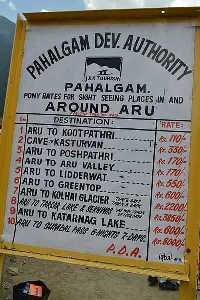 PAHALGAM DEV. AUTHORITY
J&K TOURISM
PAHALGAM.
PONY RATES FOR SIGHT SEEING PLACES IN AND
AROUND ARU
S.NO. DESTINATION: RATE:
1 ARU TO KOOTPATHRI Rs. 110/-
2 CAVE KASTURVAN Rs. 330/-
3 ARU TO POSHPATHRI Rs. 770/-
4 ARU TO ARU VALLEY. Rs. 170/-
5 ARU TO LIDDERWAT Rs. 550/-
6 ARU TO GREENTOP Rs. 600/-
7 ARU TO KOLHAI GLACIER Rs. 2200/-
8 ARU TO TARSAR LAKE &
9 ARU TO KATARNAG LAKE Rs. 600/-
10 ARU TO SUMBAL PASS 6 NIGHTS 7 DAYS. Rs. 6000/-
P.D.A.